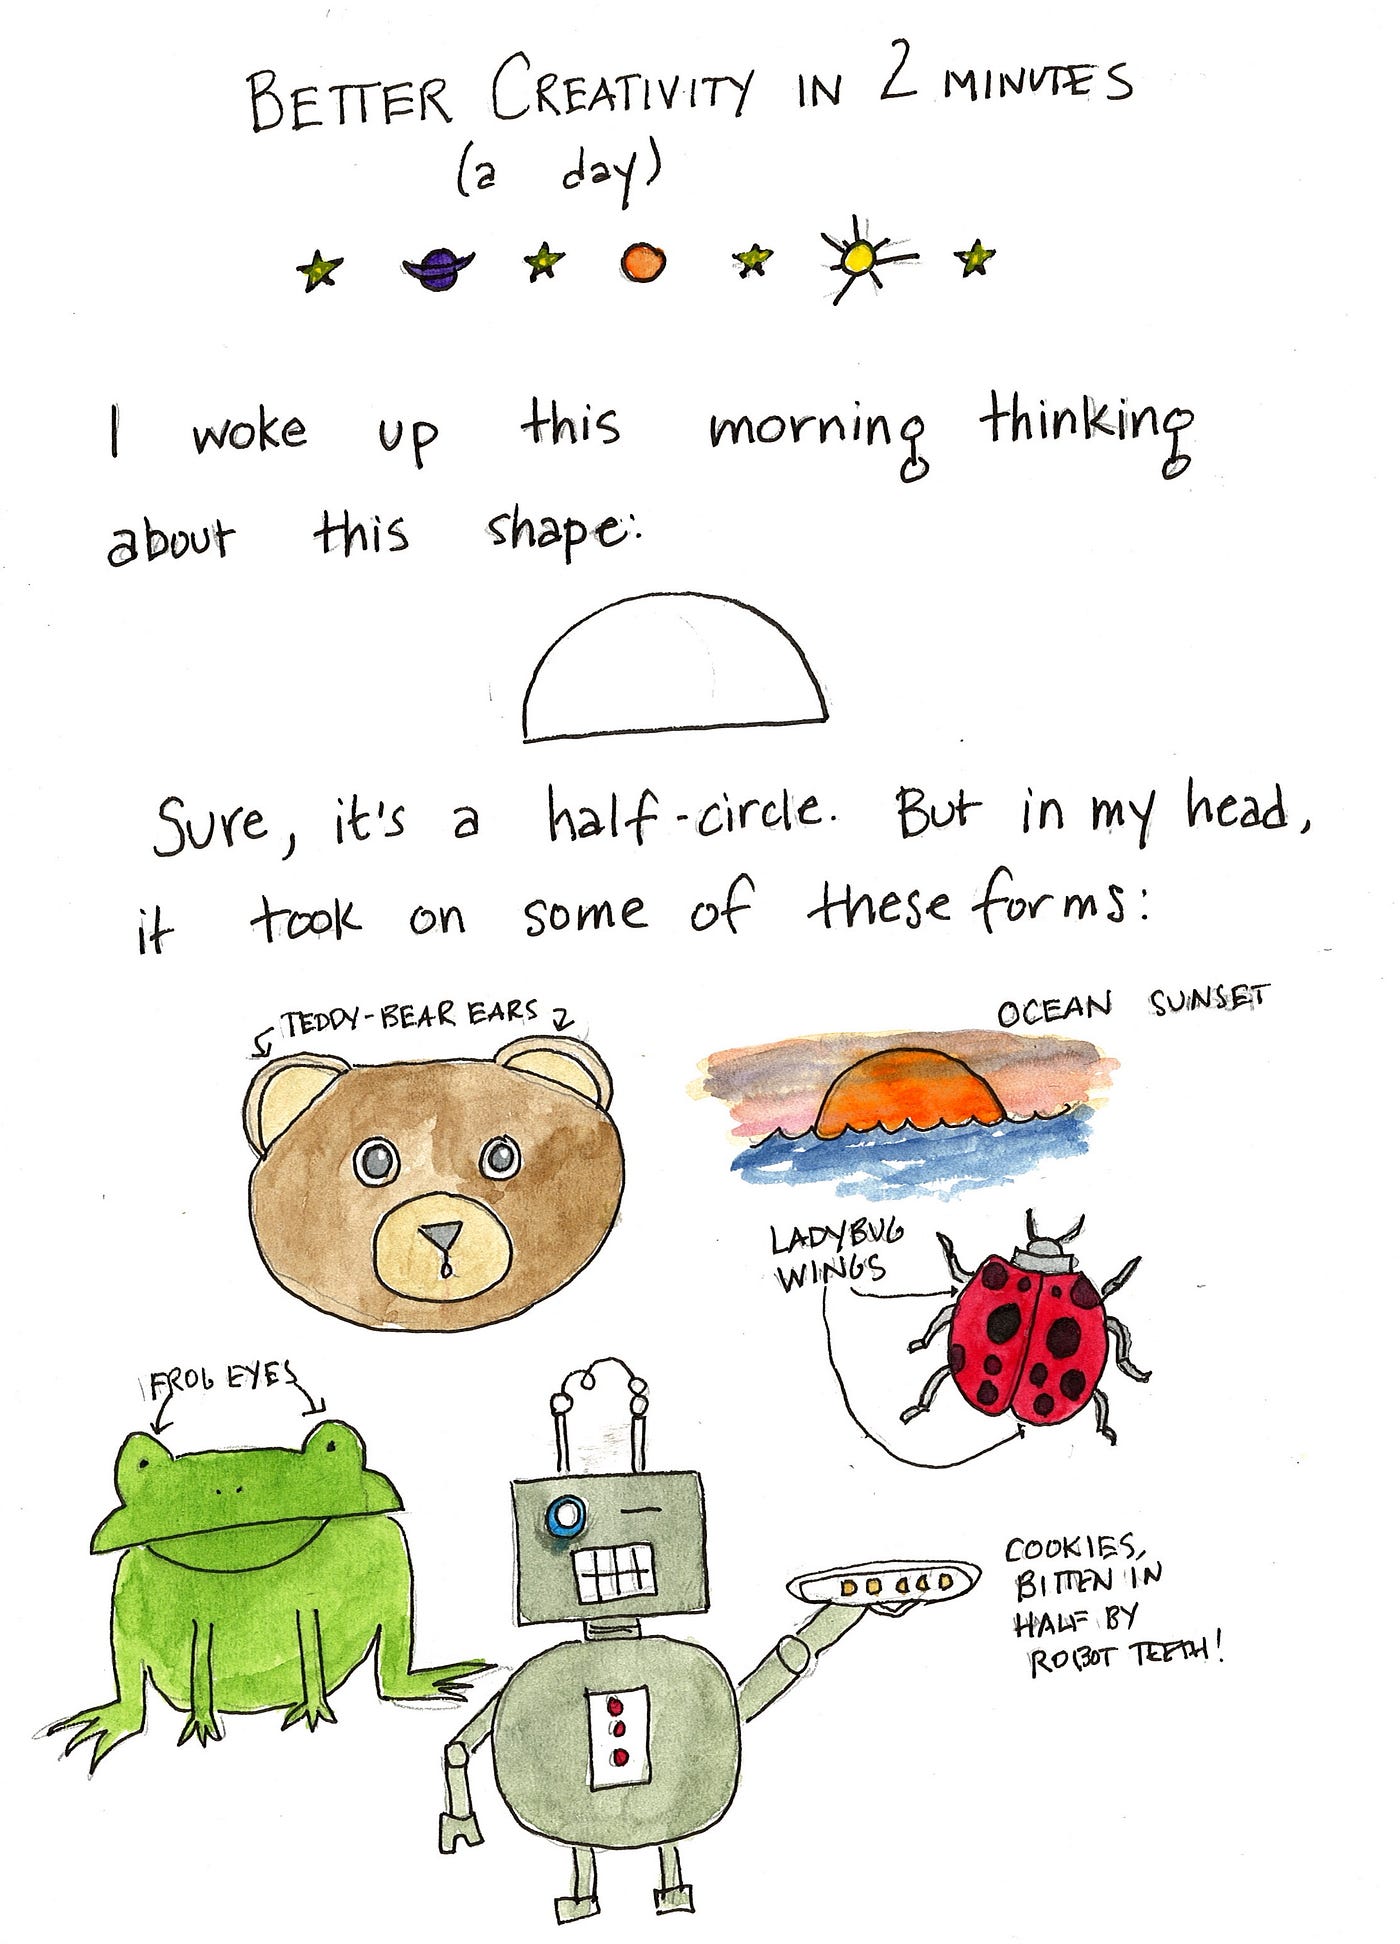 BETTER CREATIVITY IN 2 MINUTES
(a day)
I woke up this morning thinking
about this shape:
Sure, it's a half-circle. But in my head,
it took on some of these forms:
TEDDY-BEAR EARS
OCEAN SUNSET
LADYBUG
WINGS
FROG EYES
COOKIES,
BITTEN IN
HALF BY
ROBOT TEETH!